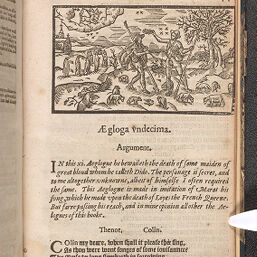 Ægloga vndecima.
Argument.
IN this xi. Aeglogue he bewaileth the death of some maiden of
great bloud whom he calleth Dido. The personage is secret, and
to me altogether vnknowne, albeit of himselfe I often required
the same. This Aeglogue is made in imitation of Marot his
song, which he made vpon the death of Loys the French Queene.
But farre passing his reach, and in mine opinion all other the Ae-
logues of this booke.
Thenot. Colin.
Colin my deare, when shall it please thee sing,
As thou were wont songs of some iouisaunce